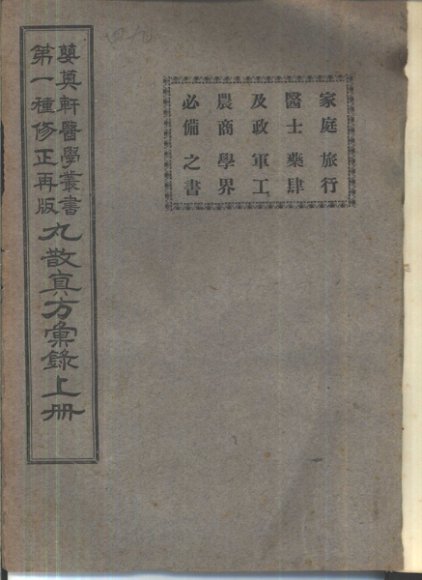 家庭旅行
醫士藥肆
及政軍工
農商學界
必備之書
軒醫學叢書
第一種修正再版
丸散真方彙錄上册